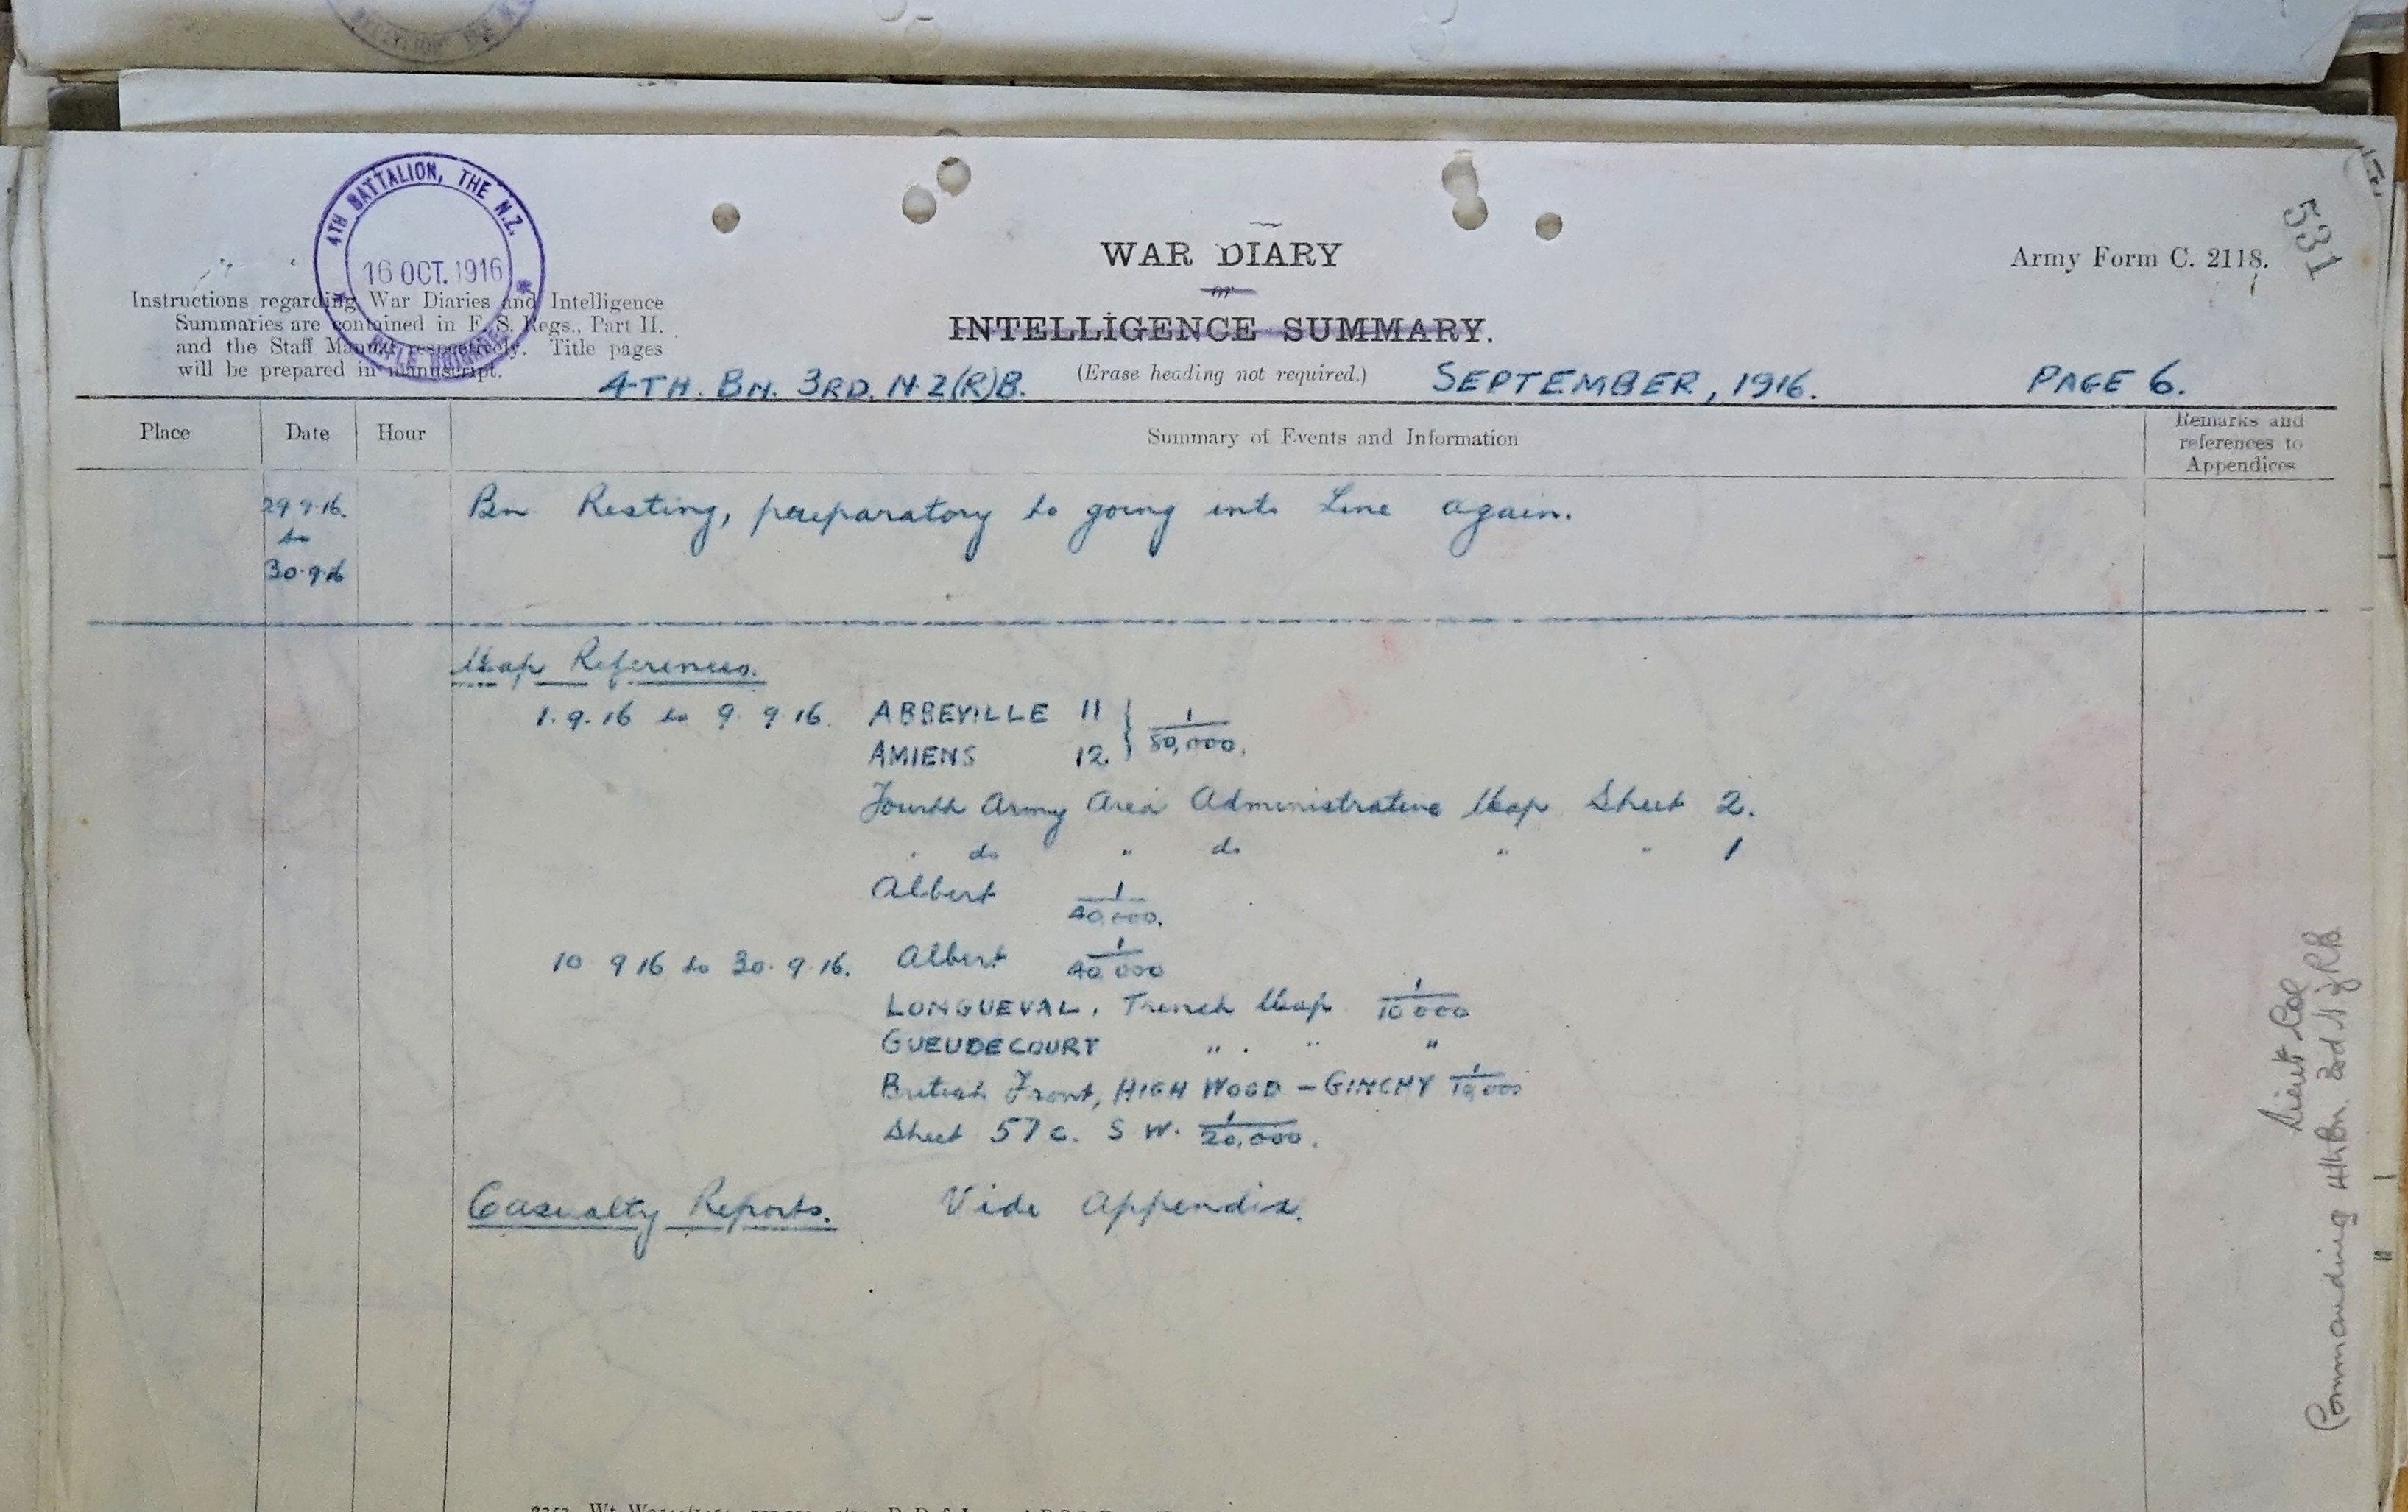 4TH BATTALION, THE N.Z.
16 OCT. 1916
RIFLE BRIGADE
531
WAR DIARY
or
INTELLIGENCE SUMMARY.
(Erase heading not required.)
Army Form C. 2118.
Instructions regarding War Diaries and Intelligence
Summaries are contained in F. S. Regs., Part II.
and the Staff Manual respectively. Title pages
will be prepared in manuscript.
4TH. BN. 3RD. N.Z(R)B. SEPTEMBER, 1916. PAGE 6.
Place Date Hour Summary of Events and Information Remarks and
references to
Appendices
29.9.16. Bn Resting, preparatory to going into Line again.
to
30.9.16
Map References.
1.9.16 to 9.9.16. ABBEVILLE 11 } 1
AMIENS 12. } 80,000.
Fourth Army Area Administrative Map Sheet 2.
" do " do " " 1
Albert 1/40,000.
10 9 16 to 30.9.16. Albert 1/40,000
LONGUEVAL, Trench Map 1/10000
GUEUDECOURT " " "
British Front, HIGH WOOD - GINCHY 1/10,000
Sheet 57 c. S W. 1/20,000.
Casualty Reports. Vide Appendix.
Lieut Col
Commanding 4th Bn. 3rd N.Z.R.B.